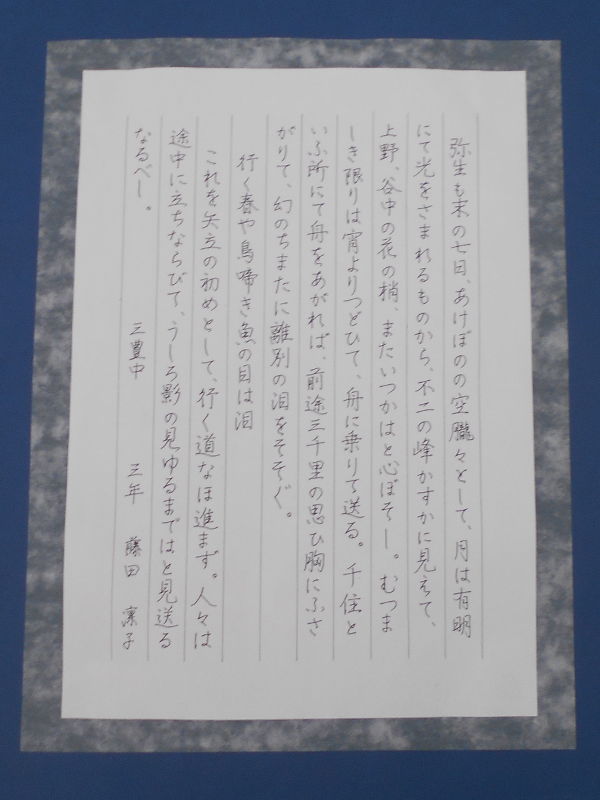 弥生も末の七日、あけぼのの空朧々として、月は有明
にて光をさまれるものから、不二の峰かすかに見えて、
上野、谷中の花の梢、またいつかはと心ぼそし。むつま
しき限りは宵よりつどひて、舟に乗りて送る。千住と
いふ所にて舟をあがれば、前途三千里の思ひ胸にふさ
がりて、幻のちまたに離別の泪をそそぐ。
行く春や鳥啼き魚の目は泪
これを矢立の初めとして、行く道なほ進まず。人々は
途中に立ちならびて、うしろ影の見ゆるまではと見送る
なるべし。
三豊中 三年 藤田 凜子